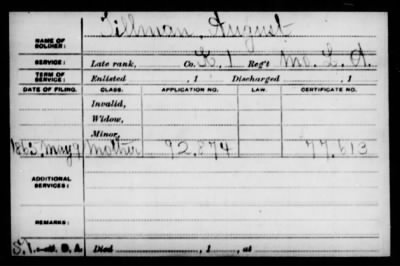 Tillman, August
NAME OF SOLDIER:
SERVICE: Late rank, Co. K, 1 Reg't Mo. L. A.
TERM OF SERVICE: Enlisted , 1 Discharged , 1
DATE OF FILING. CLASS. APPLICATION NO. LAW. CERTIFICATE NO.
Invalid,
Widow,
Minor,
1865 May 9 Mother 92.874 77.613
ADDITIONAL SERVICES:
REMARKS:
Died , 1 , at